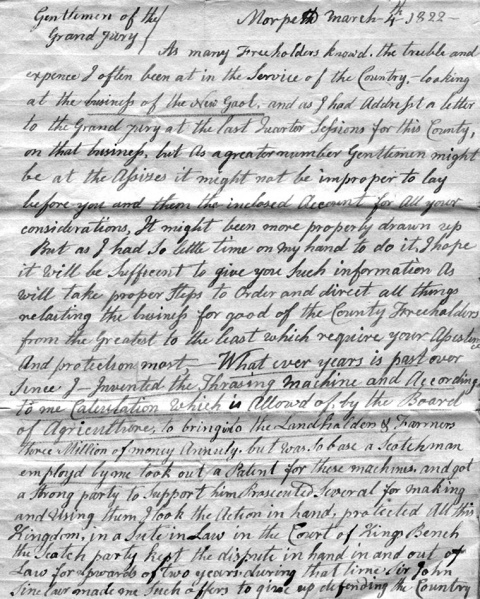 Gentlemen of the
Grand Jury
Morpeth March 4th 1822 -
As many Freeholders knowd. the trouble and
expence I often been at in the Service of the Country, - looking
at the business of the New Gaol. and as I had Addresst a letter
to the Grand jury at the last Quarter Sessions for this County,
on that business, but As a greater number Gentlemen might
be at the Assizes it might not be improper to lay
before you and them the inclosed Account for All your
considerations, It might been more properly drawn up
But as I had so little time on my hand to do it, I hope
it will be Suffecent to give you Such information As
will take proper Steps to Order and direct all things
relaiting the business for good of the County Freeholders
from the Greatest to the least which require your Assistance
And protection most, - What ever years is past over
Since I - Invented the Thrasing Machine and According
to me Calculation which is Allowd of, by the Board
of Agriculture, to bringinto the Landhalders & Farmers
three Million of money Annuly, but was So base a Scotchman
employd by me took out a Patent for these machines, and got
a Strong party to Support him Prosecuted Several for making
and Using them, I took the Action in hand, protected All this
Kingdom, in a Sute in Law in the Court of Kings Bench
the Scotch party kept the dispute in hand in and out of
Law for upwards of two years. during that time Sir John
Sinclair made me Such offers to give up defending the Country